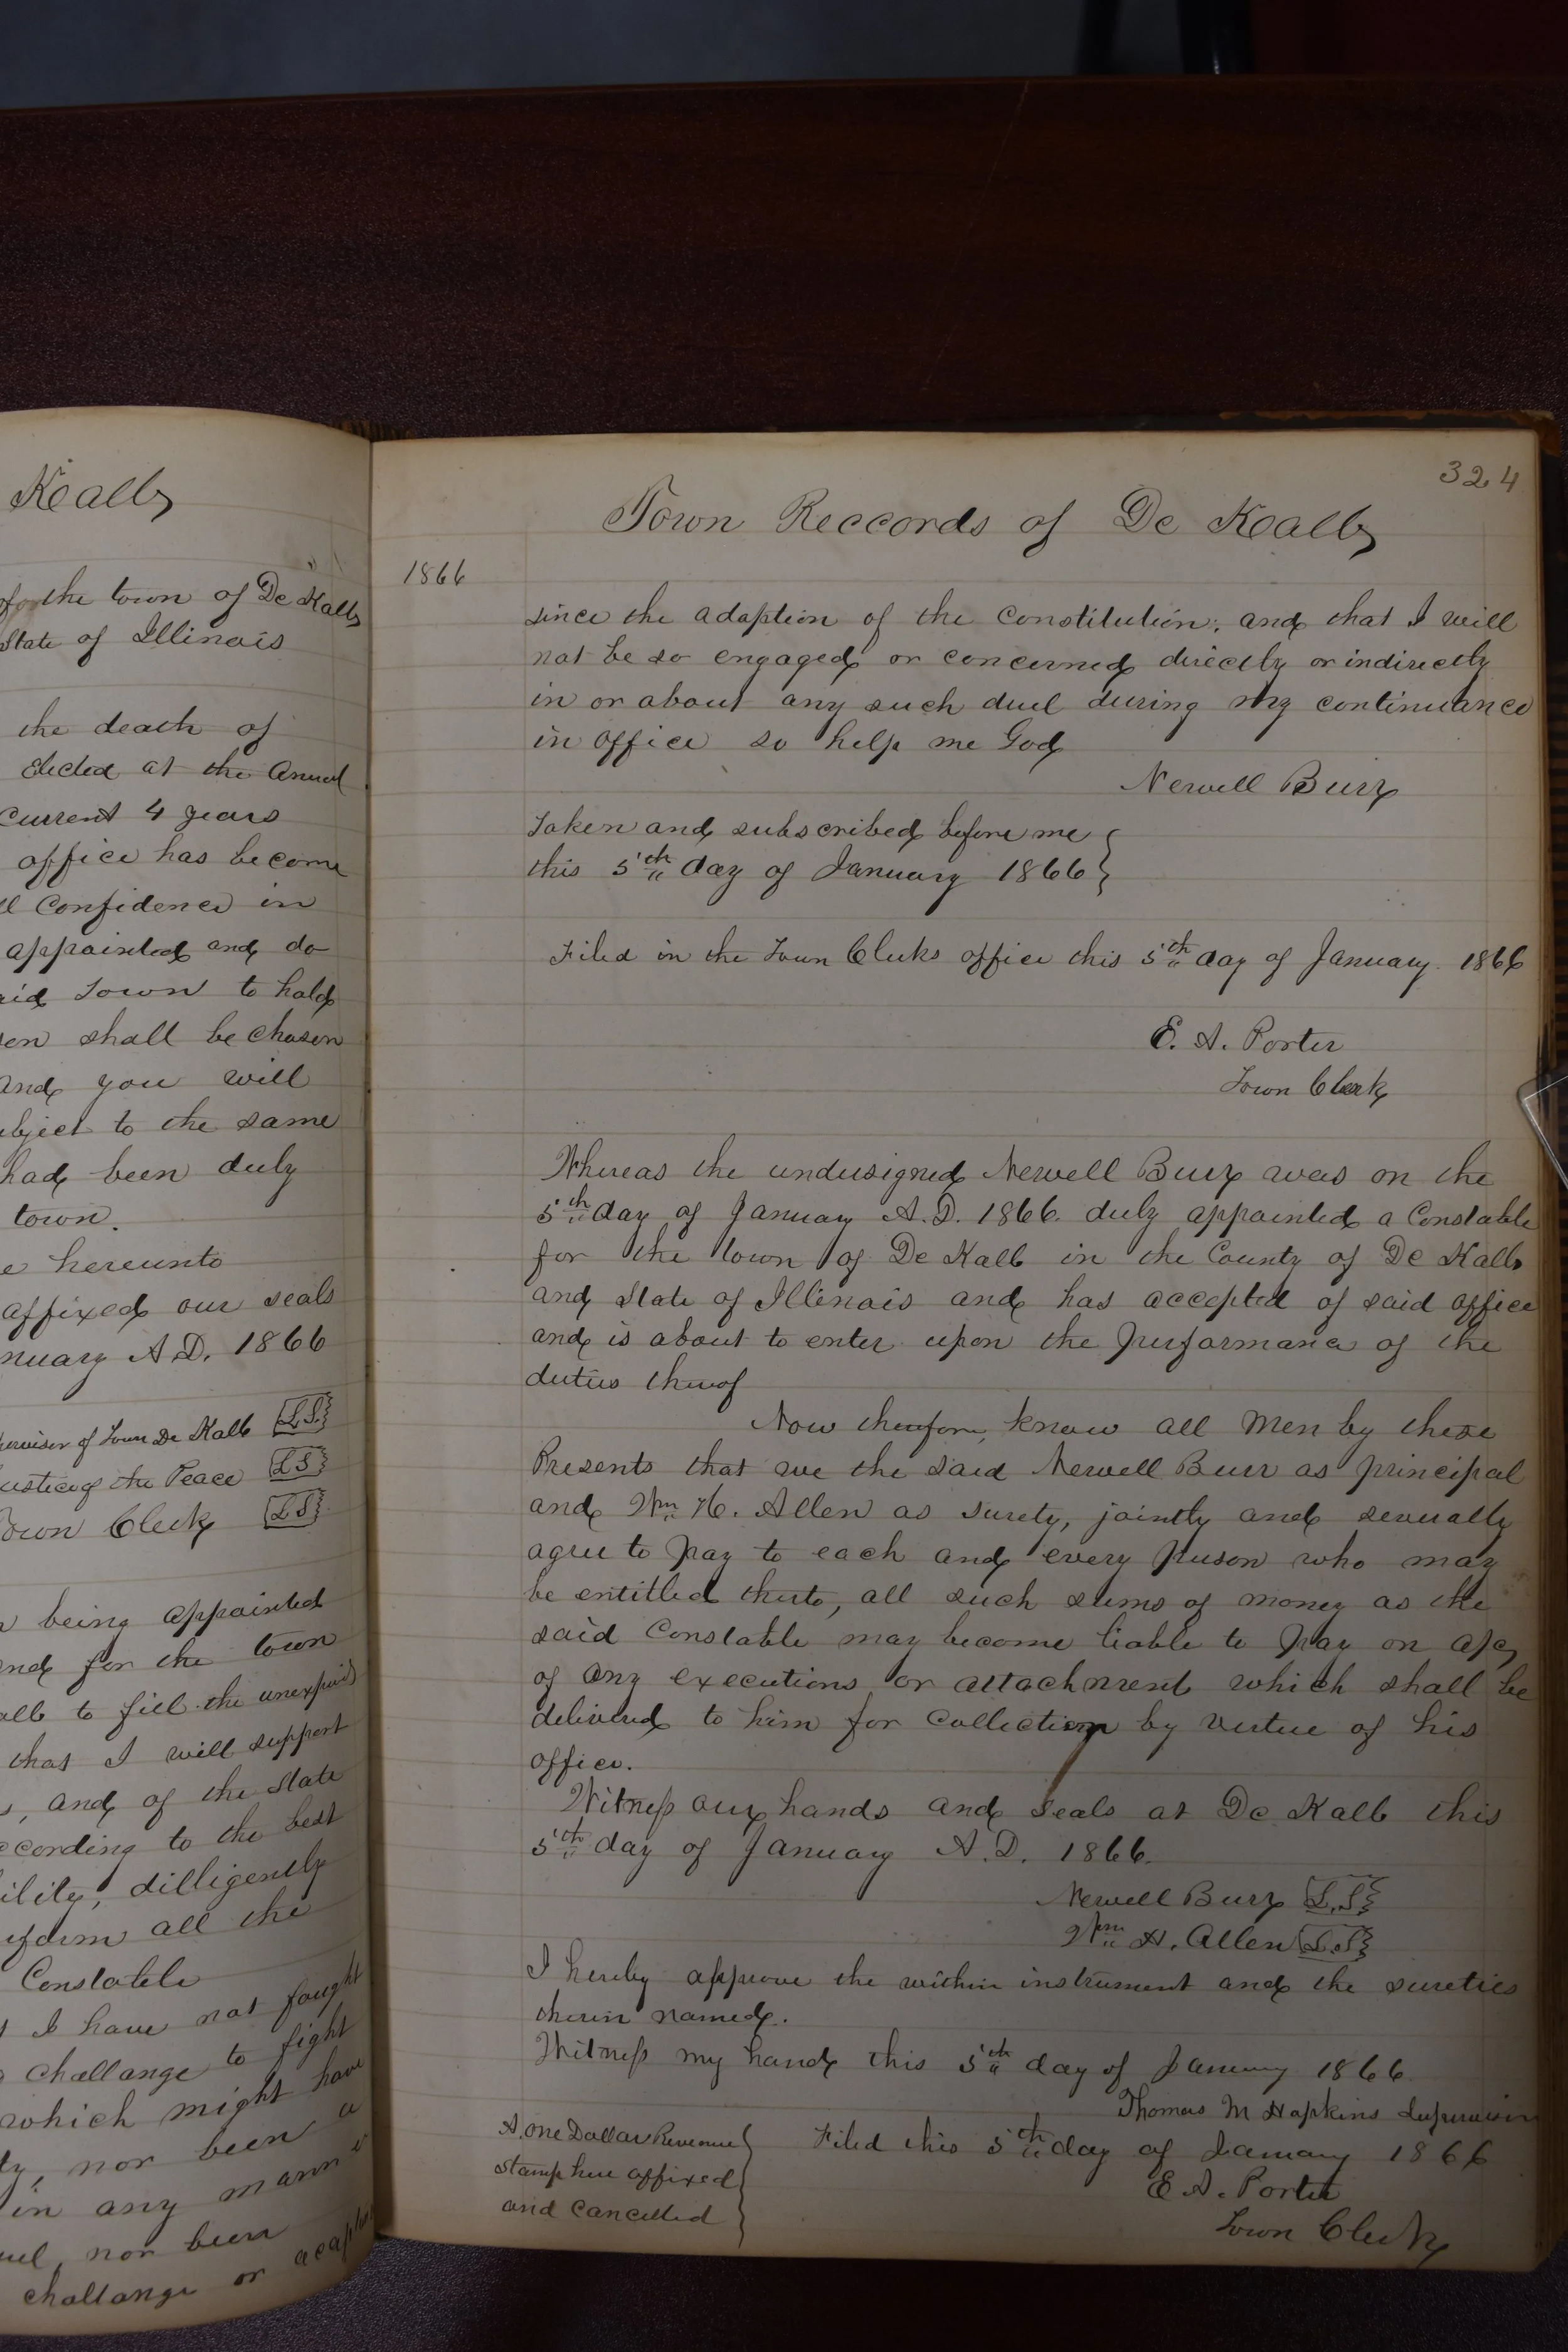 Kalb
for the town of De Kalb
State of Illinois
the death of
Elected at the Annual
Current 4 years
office has become
Confidence in
appointed and do
said Town to hold
shall be chosen
and you will
subject to the same
had been duly
town.
hereunto
affixed our seals
January A.D. 1866
Supervisor of Town De Kalb L.S.
Justice of the Peace L S
Town Clerk L S
being appointed
and for the town
to fill the unexpired
that I will support
and of the State
according to the best
ability, dilligently
perform all the
Constable
I have not fought
challange to fight
which might have
nor been a
in any manner
duel, nor been
challange or
324
Town Reccords of De Kalb
1866
since the adaption of the Constitution; and that I will
not be so engaged or concerned directly or indirectly
in or about any such duel during my continuance
in office so help me God
Newell Burr
Taken and subscribed before me
this 5th day of January 1866
Filed in the Town Clerks office this 5th day of January 1866
E. A. Porter
Town Clerk
Whereas the undersigned Newell Burr was on the
5th day of January A.D. 1866. duly appointed a Constable
for the town of De Kalb in the County of De Kalb
and State of Illinois and has accepted of said office
and is about to enter upon the performance of the
duties thereof
Now therefore, know all Men by these
Presents that we the said Newell Burr as principal
and Wm H. Allen as surety, jointly and severally
agree to pay to each and every person who may
be entitled thereto, all such sums of money as the
said Constable may become liable to pay on a/c
of any executions or attachment which shall be
delivered to him for Collection by virtue of his
office.
Witness our hands and seals at De Kalb this
5th day of January A.D. 1866.
Newell Burr L.S
Wm H. Allen L.S
I hereby approve the within instrument and the sureties
therein named.
Witness my hand this 5th day of January 1866
Thomas M Hopkins Supervisor
A. one Dollar Revenue
stamp here affixed
and cancelled
Filed this 5th day of January 1866
E A. Porter
Town Clerk